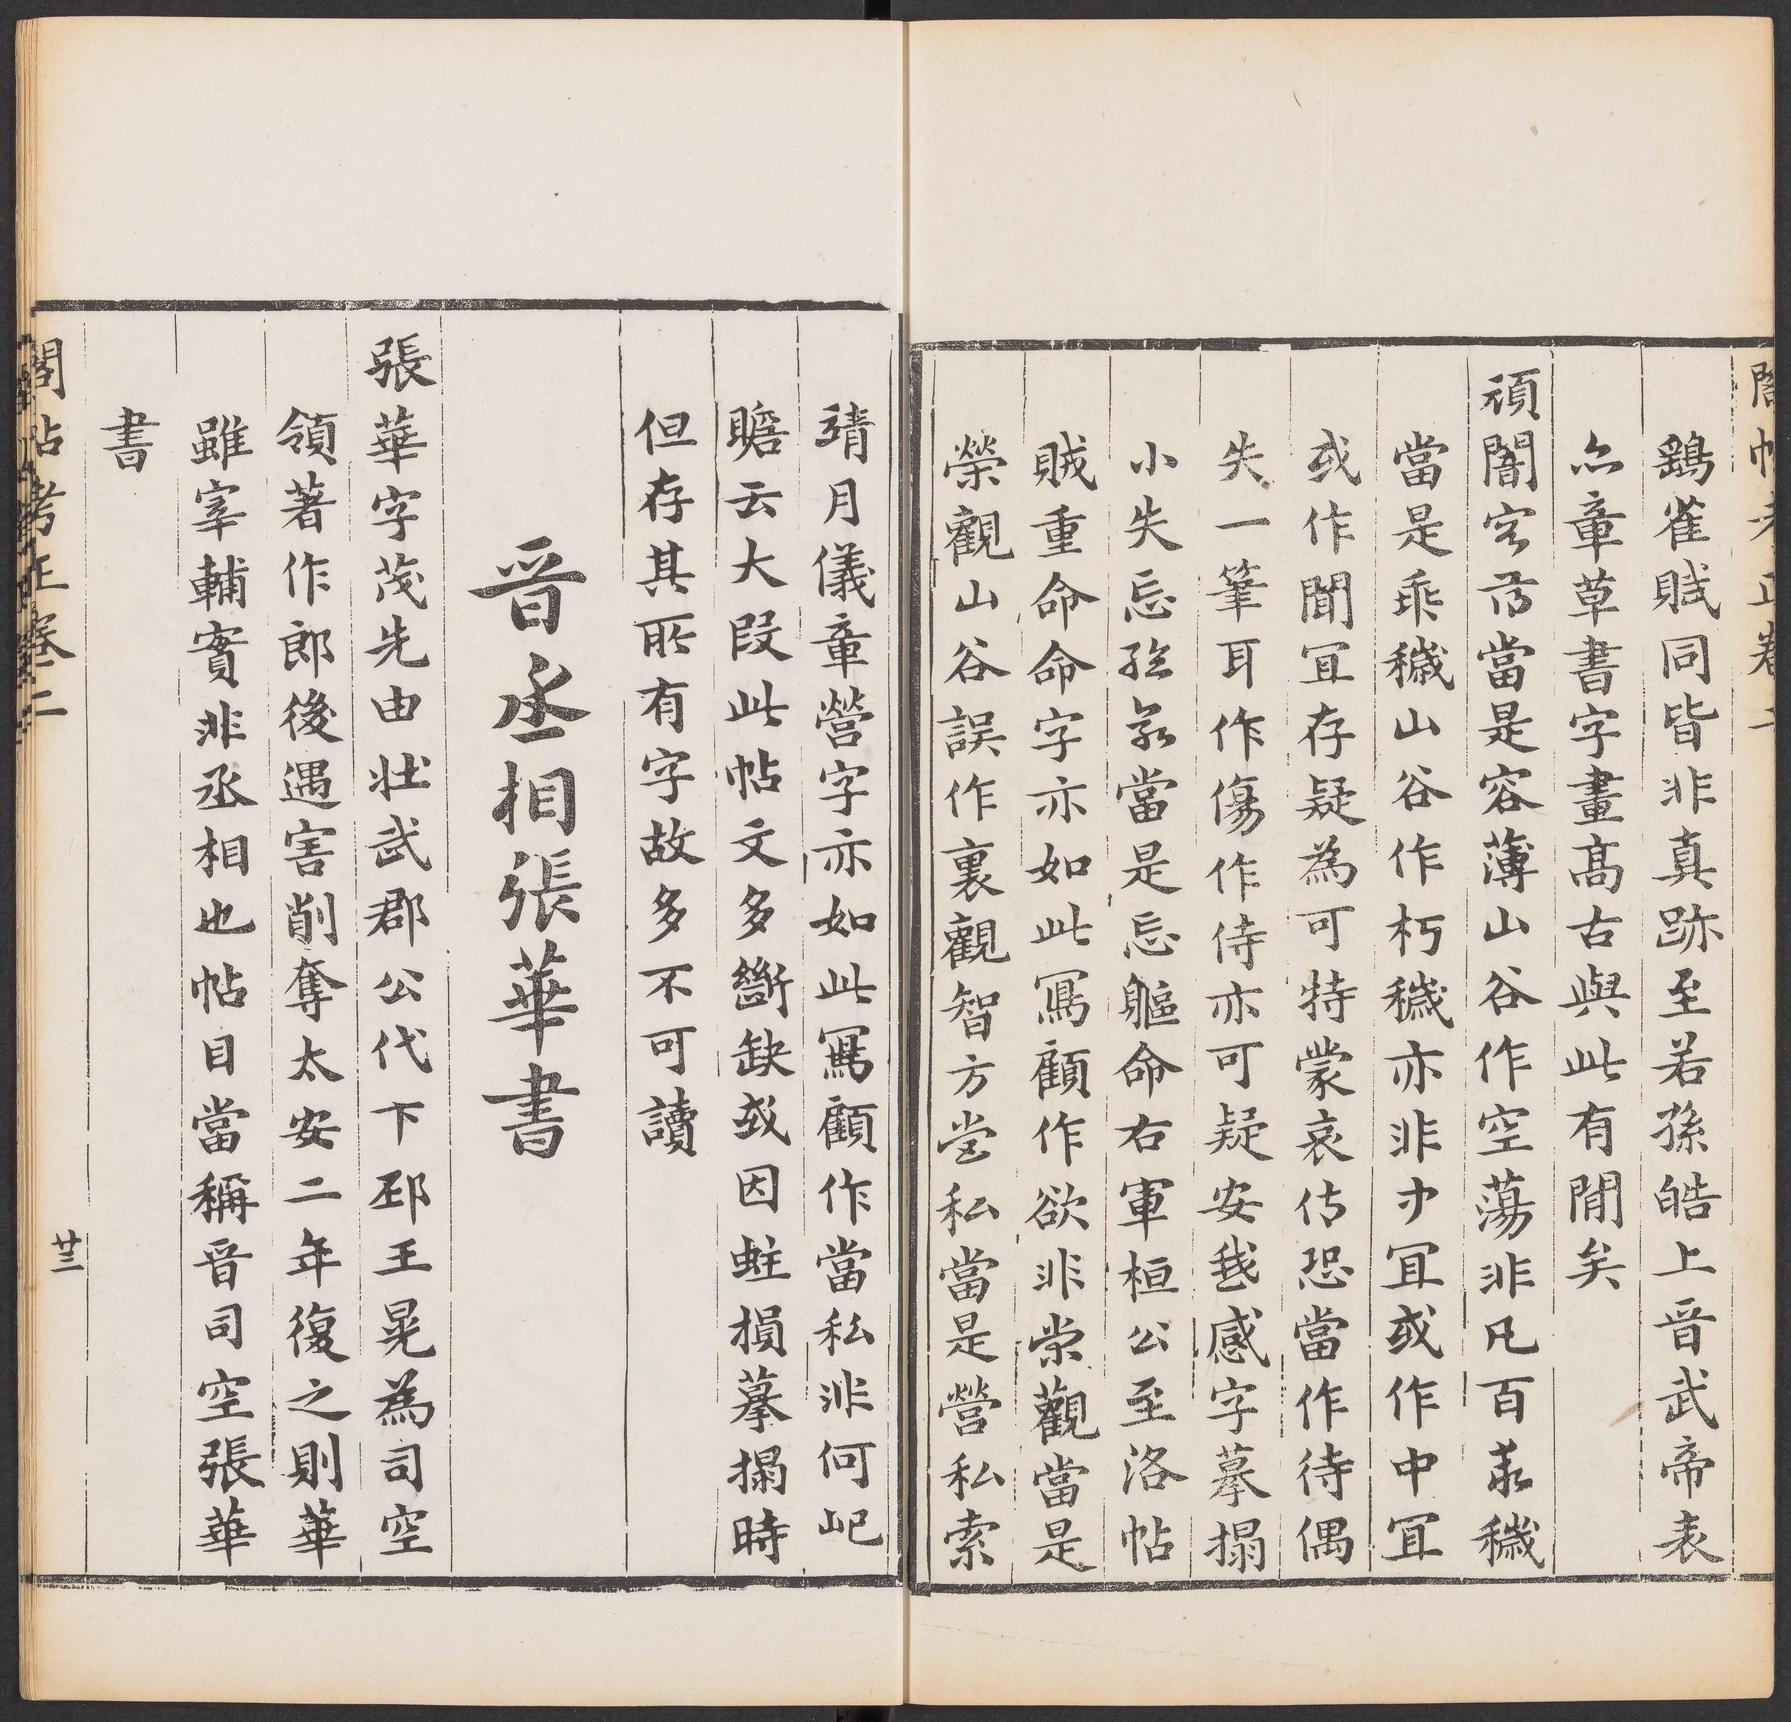 閣帖考正卷二
鷃雀賦同皆非真跡至若孫皓上晉武帝表
亦章草書字畫髙古與此有閒矣
頑闇㝐𦭘當是容薄山谷作空蕩非凡百豙穢
當是乖穢山谷作朽穢亦非才冝或作中冝
或作聞冝存疑為可特蒙哀待恐當作待偶
失一筆耳作傷作侍亦可疑安我感字摹搨
小失忘䋲躳當是忘軀命右軍桓公至洛帖
賊重命命字亦如此寫顧作欲非常觀當是
榮觀山谷誤作裏觀智方営私當是營私索
靖月儀章營字亦如此寫顧作當私非何屺
瞻云大段此帖文多斷缺或因蛀損摹搨時
但存其所有字故多不可讀
晉丞相張華書
張華字茂先由壯武郡公代下邳王晃為司空
領著作郎後遇害削奪太安二年復之則華
雖宰輔實非丞相也帖目當稱晉司空張華
書
閣帖考正卷二
廿三